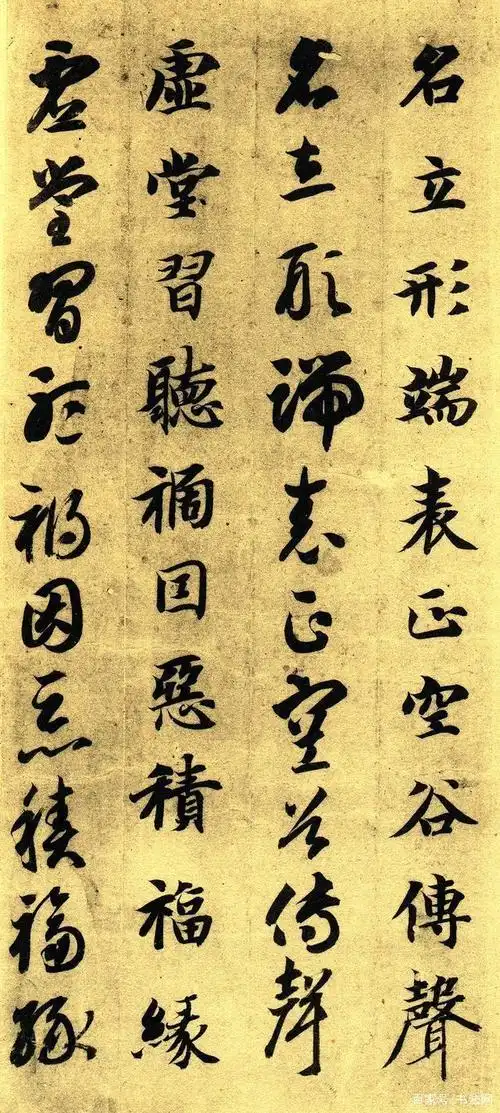 名立形端表正空谷傳聲
名立形端表正空谷傳聲
虛堂習聽禍因惡積福緣
虛堂習聽禍因惡積福緣
百家号/书法网